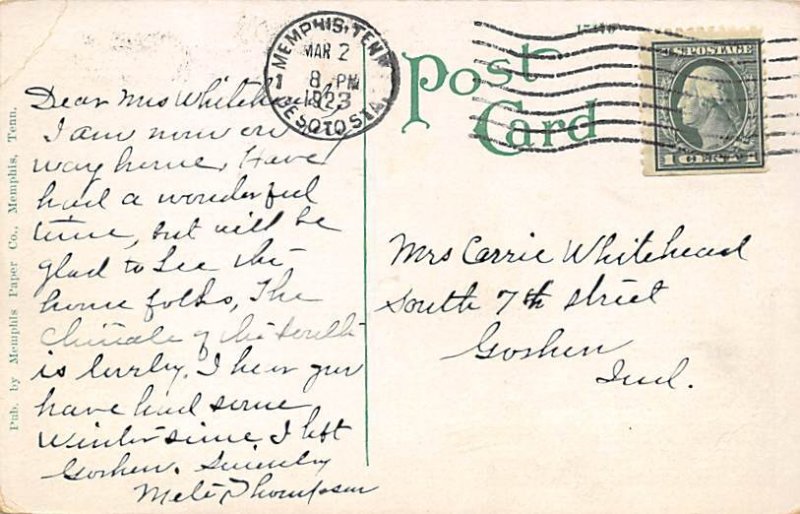 Pub. by Memphis Paper Co., Memphis, Tenn.
MEMPHIS, TENN
MAR 2
8 PM
1923
DESOTO STA.
Post
Card
U.S. POSTAGE
1 CENT 1
Dear Mrs Whitehead
I am now on
way home, Have
had a wonderful
time, but will be
glad to see the
home folks, The
climate of the South
is lovely. I hear you
have had some
winter since I left
Goshen. Sincerely
Thompson
Mrs Carrie Whitehead
South 7th street
Goshen
Ind.